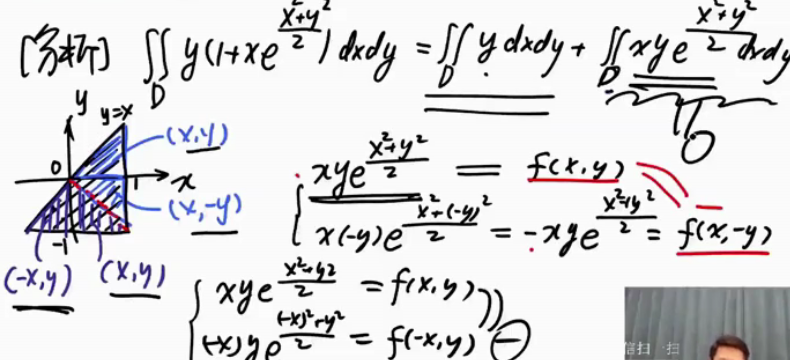 [分析] ∬_D y(1+xe^{\frac{x²+y²}{2}}) dxdy = ∬_D y dxdy + ∬_D xye^{\frac{x²+y²}{2}} dxdy
y
y=x
(x,y)
0
0
1
x
xye^{\frac{x²+y²}{2}} = f(x,y)
(x,-y)
x(-y)e^{\frac{x²+(-y)²}{2}} = -xye^{\frac{x²+y²}{2}} = f(x,-y)
-1
(-x,y)
(x,y)
xye^{\frac{x²+y2}{2}} = f(x,y)
(-x)ye^{\frac{(-x)²+y²}{2}} = f(-x,y)
扫一扫